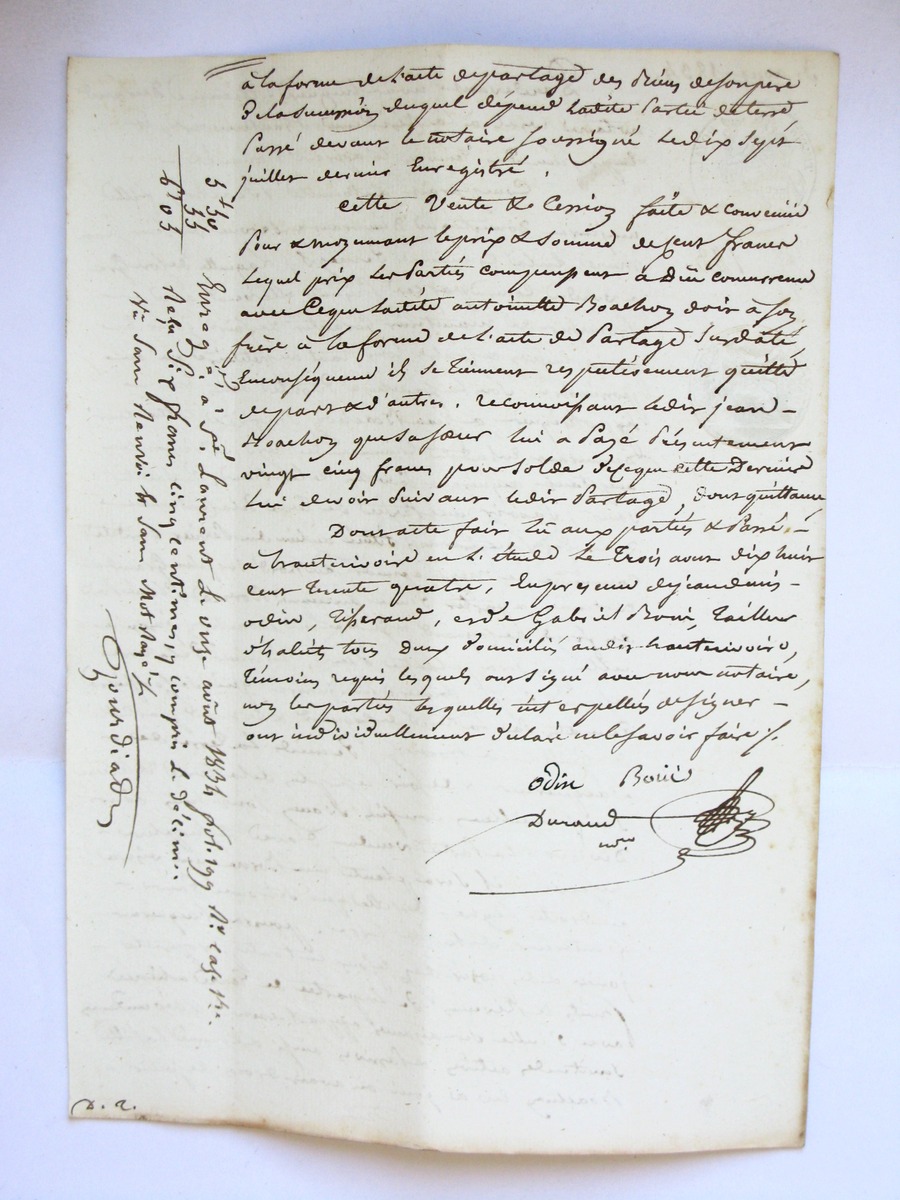 à la forme de l'acte de partage des Biens de son père
& la succession duquel dépend ladite Partie de terre
Passé devant le notaire soussigné le dix sept
juillet dernier Enregistré.
Cette Vente & Cession faite & convenue
Pour & moyennant le prix & somme de cent francs
lequel prix les Parties compensent à Due concurrence
avec ce que ladite antoinette Boachon doit à son
frère à la forme de l'acte de Partage Susdaté,
En conséquence ils se tiennent respectivement quitte
de part & d'autres. reconnoissant ledit jean-
Boachon que sa sœur lui a Payé Présentement
vingt cinq francs pour solde de ce que cette Dernière
lui devoit suivant ledit Partage, dont quittance
Dont acte fait lu aux parties & Passé -
à hauterivoire en l'étude le Trois aout dix huit
cent trente quatre, En présence de jean denis -
odin, Tisserand, et de Gabriel Boüi, Tailleur
d'habits tous deux domiciliés audit hauterivoire,
Témoins requis lesquels ont signé avec nous notaire,
non les parties lesquelles interpellées de signer -
ont individuellement déclaré ne le savoir faire /.
odin Boüi
Durand
nore
5 f 50
55
6 f 05
Enreg. à St. Laurent le onze août 1834 fol. 199 Ro. case 1re.
Reçu Six francs cinq centimes, y compris le décime.
Ni Sans Renvoi & Sans Mot Rayé /.
Gourdiad
D. 2.